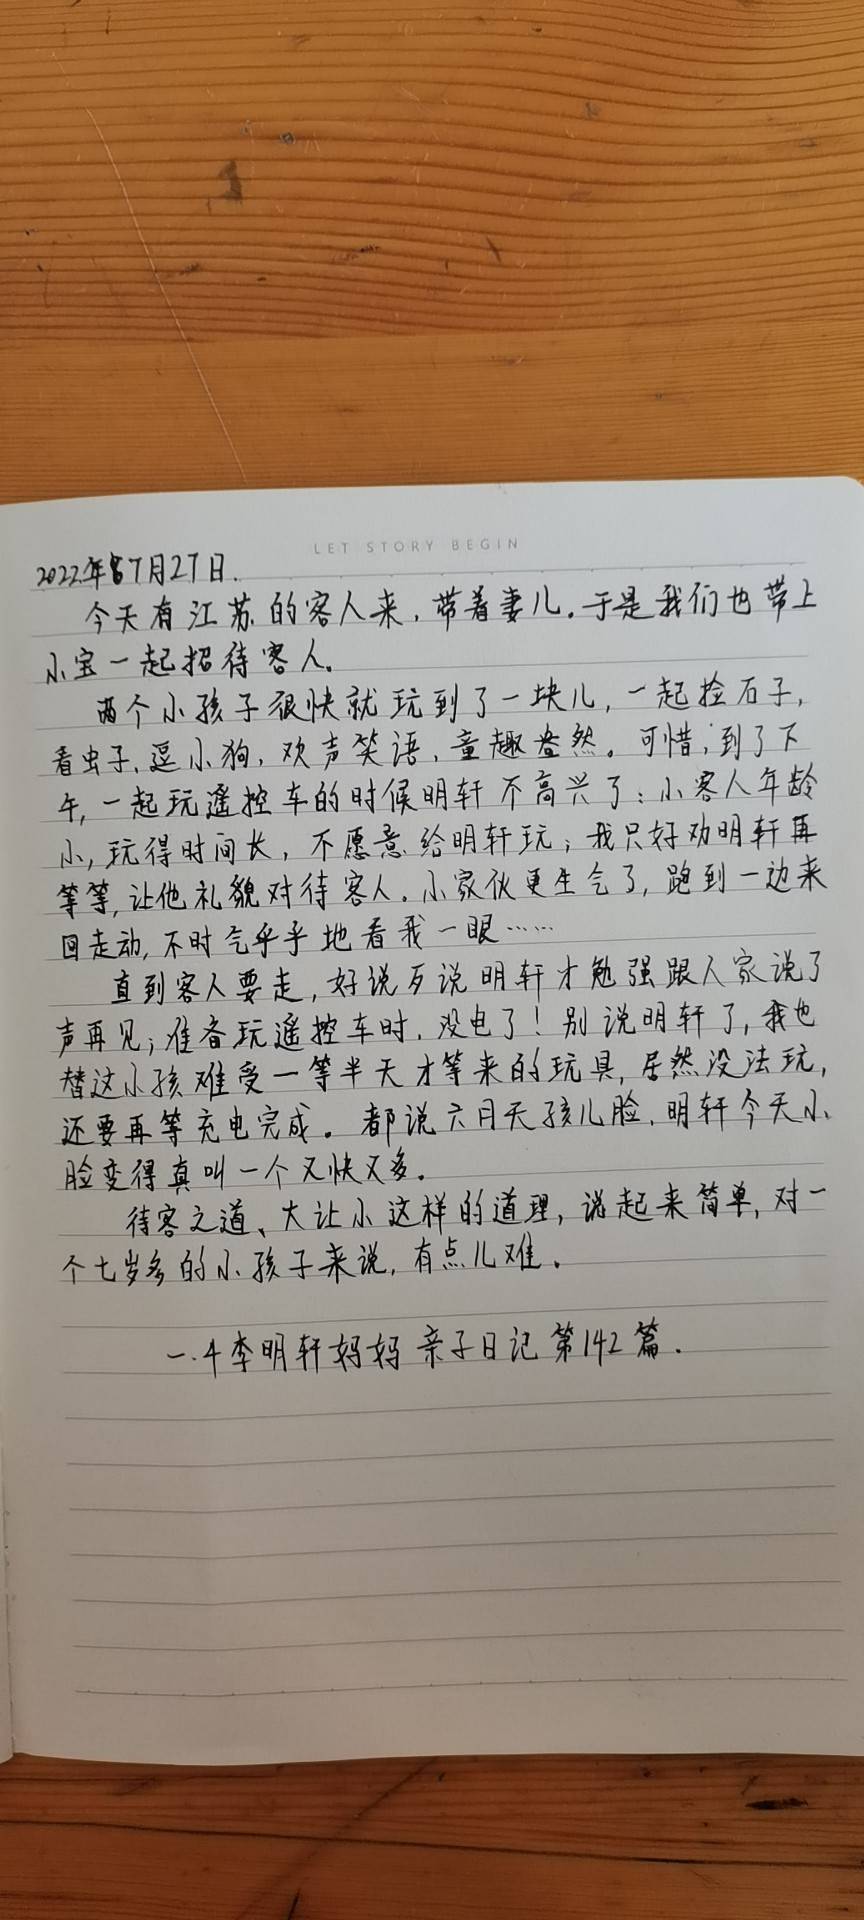 LET STORY BEGIN
2022年7月27日.
今天有江苏的客人来,带着妻儿。于是我们也带上
小宝一起招待客人。
两个小孩子很快就玩到了一块儿,一起捡石子,
看虫子、逗小狗,欢声笑语,童趣盎然。可惜,到了下
午,一起玩遥控车的时候明轩不高兴了:小客人年龄
小,玩得时间长,不愿意给明轩玩;我只好劝明轩再
等等,让他礼貌对待客人。小家伙更生气了,跑到一边来
回走动,不时气乎乎地看我一眼……
直到客人要走,好说歹说明轩才勉强跟人家说了
声再见;准备玩遥控车时,没电了!别说明轩了,我也
替这小孩难受一等半天才等来的玩具,居然没法玩,
还要再等充电完成。都说六月天孩儿脸,明轩今天小
脸变得真叫一个又快又多。
待客之道、大让小这样的道理,说起来简单,对一
个七岁多的小孩子来说,有点儿难。
一.4李明轩妈妈亲子日记第142篇.